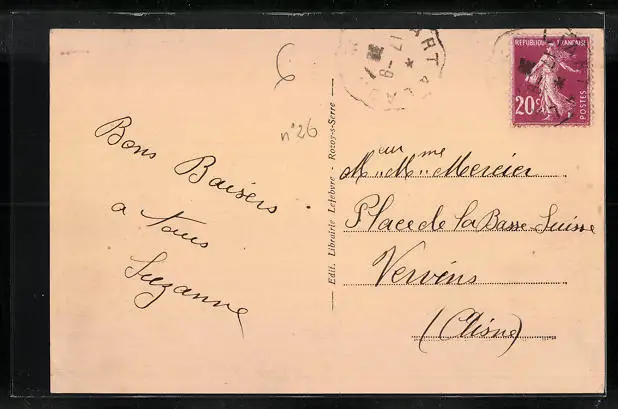 Bons Baisers
a tous
Suzanne
n°26
Edit. Librairie Lefebvre - Rozoy-s-Serre
REPUBLIQUE FRANÇAISE
20c
POSTES
Meur Mme Mercier
Place de la Basse-Suisse
Vervins
(Aisne)